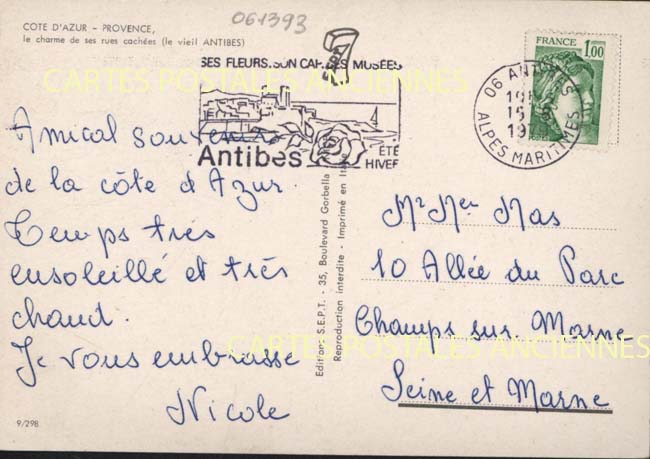 061393
COTE D'AZUR - PROVENCE,
le charme de ses rues cachées (le vieil ANTIBES)
SES FLEURS. SON CAP. SES MUSÉES
Antibes
ÉTÉ
HIVER
FRANCE 1,00
06 ANTIBES
15
19
ALPES MARITIMES
CARTES POSTALES ANCIENNES
Amical souvenir
de la côte d'Azur.
Temps très
ensoleillé et très
chaud.
Je vous embrasse
Nicole
Editions S.E.P.T. - 35, Boulevard Gorbella
Reproduction interdite - Imprimé en
Mr Mer Mas
10 Allée du Parc
Champs sur Marne
CARTES POSTALES ANCIENNES
Seine et Marne
9/298